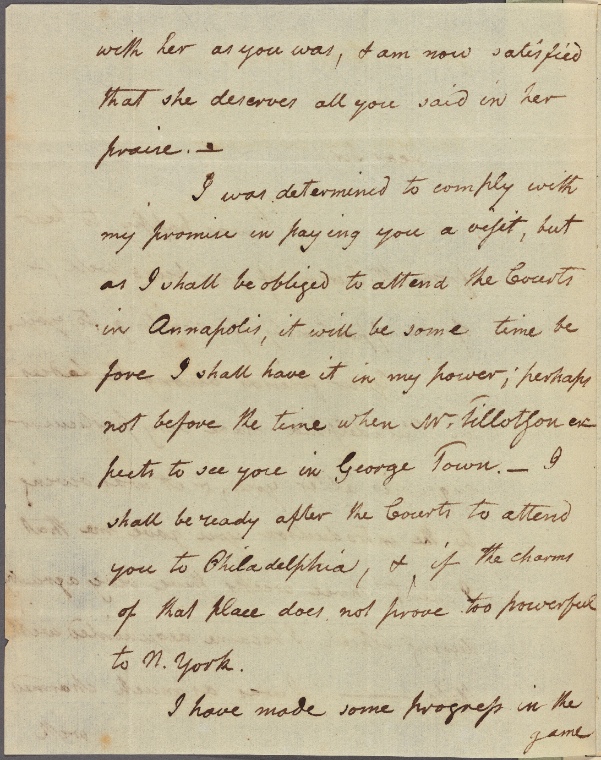 with her as you was, & am now satisfied
that she deserves all you said in her
praise. —
I was determined to comply with
my promise in paying you a visit, but
as I shall be obliged to attend the Courts
in Annapolis, it will be some time be
fore I shall have it in my power; perhaps
not before the time when Mr. Tillotson ex
pects to see you in George Town. — I
shall be ready after the Courts to attend
you to Philadelphia, &, if the charms
of that place does not prove too powerful
to N. York.
I have made some progress in the
game